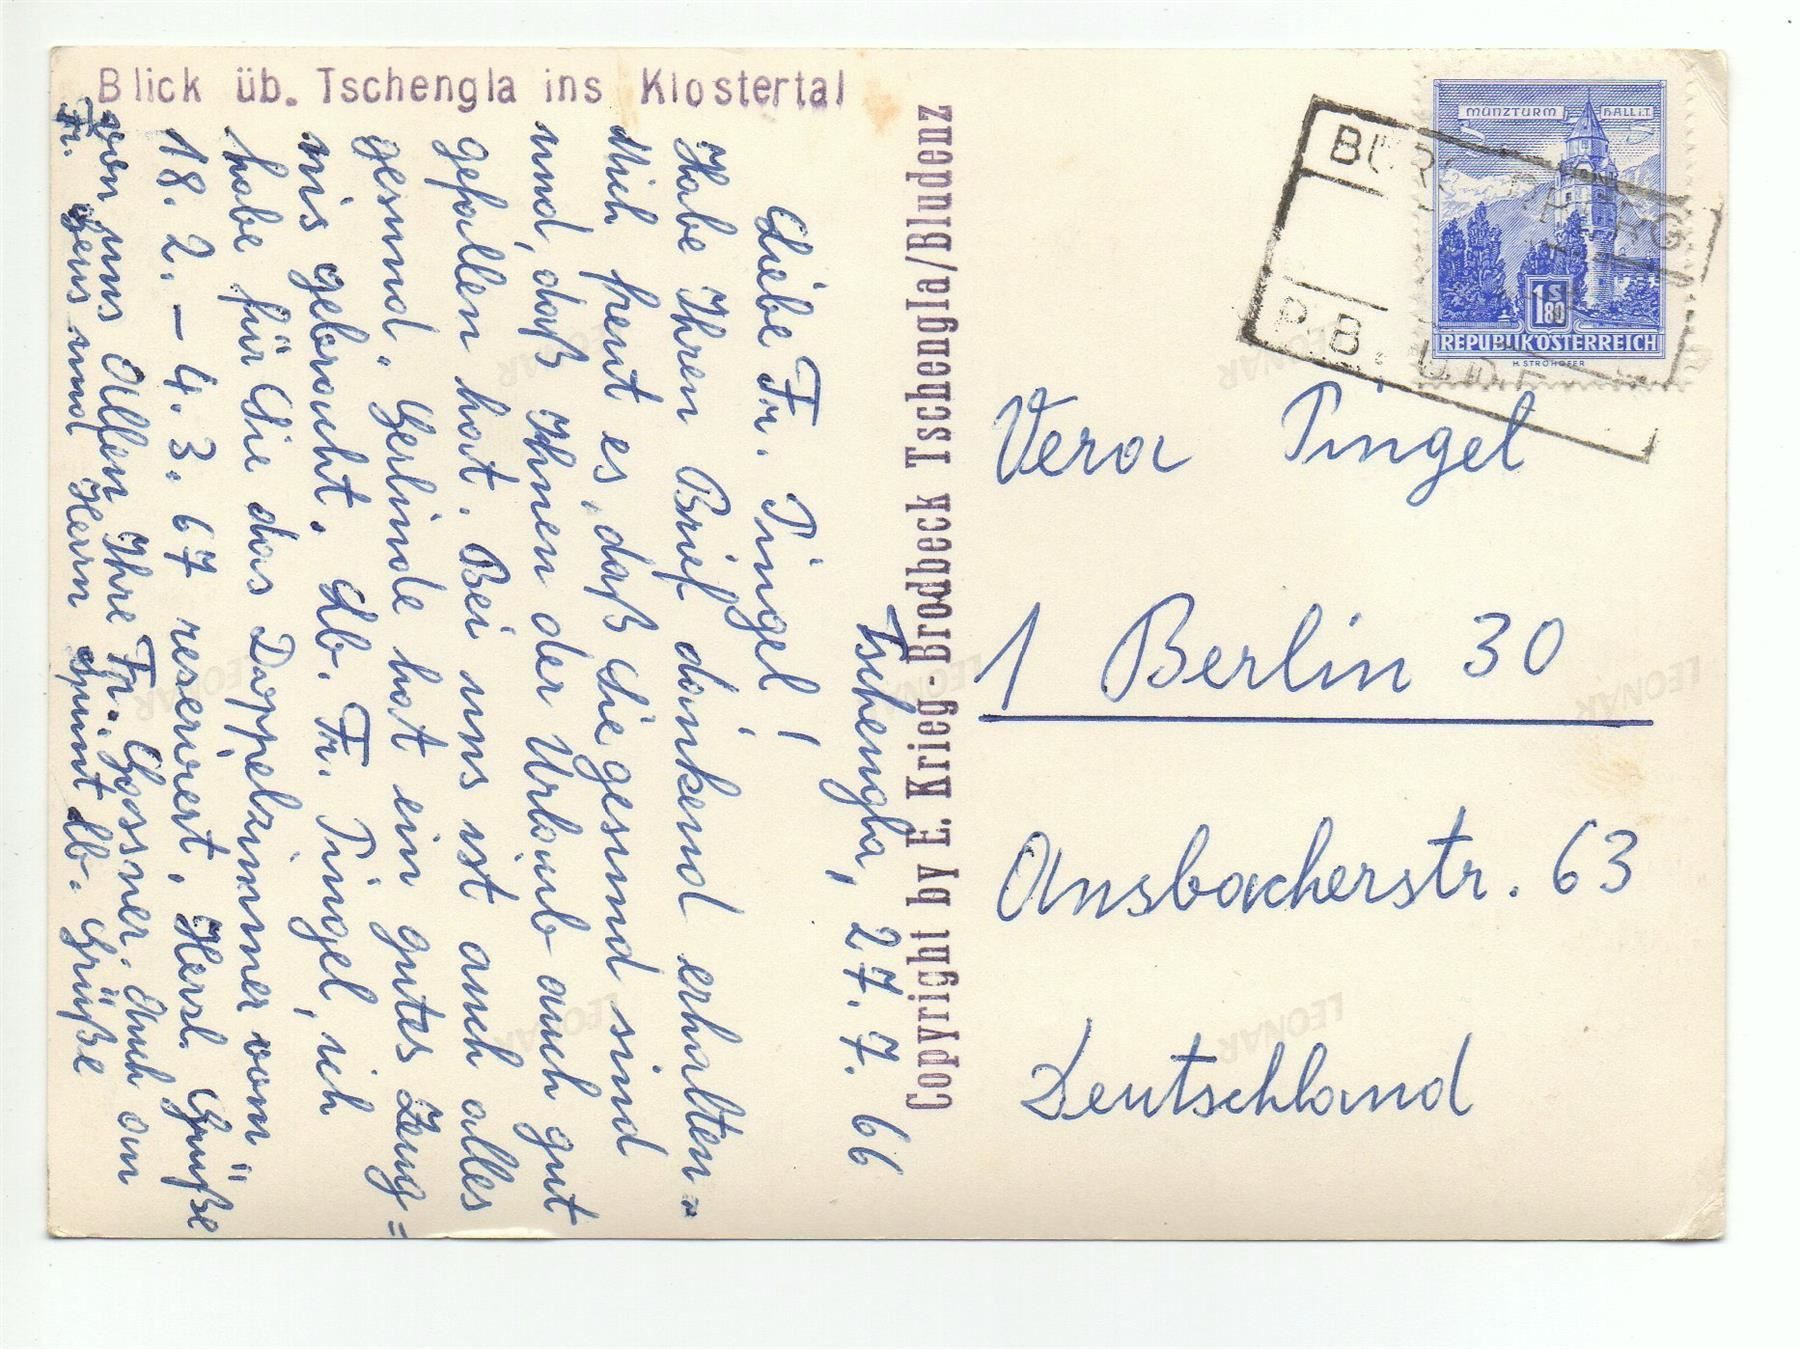 Blick üb. Tschengla ins Klostertal
Tschengla, 27. 7. 66
Liebe Fr. Pingel!
Habe Ihren Brief dankend erhalten.
Mich freut es, daß Sie gesund sind
und, daß Ihnen der Urlaub auch gut
gefallen hat. Bei uns ist auch alles
gesund. Gerlinde hat ein gutes Zeug=
nis gebracht. Lb. Fr. Pingel, ich
habe für Sie das Doppelzimmer vom
18. 2. – 4. 3. 67 reserviert. Herzl. Grüße
von uns Allen Ihre Fr. Gassner. Auch an
Fr. und Herrn lb. Grüße
Copyright by E. Krieg-Brodbeck Tschengla/Bludenz
MÜNZTURM HALL i.T.
1 S 80
REPUBLIK ÖSTERREICH
H. STROHOFER
Vera Pingel
1 Berlin 30
Ansbacherstr. 63
Deutschland
LEONAR
LEONAR
LEONAR
LEONAR
LEONAR
LEONAR
LEONAR